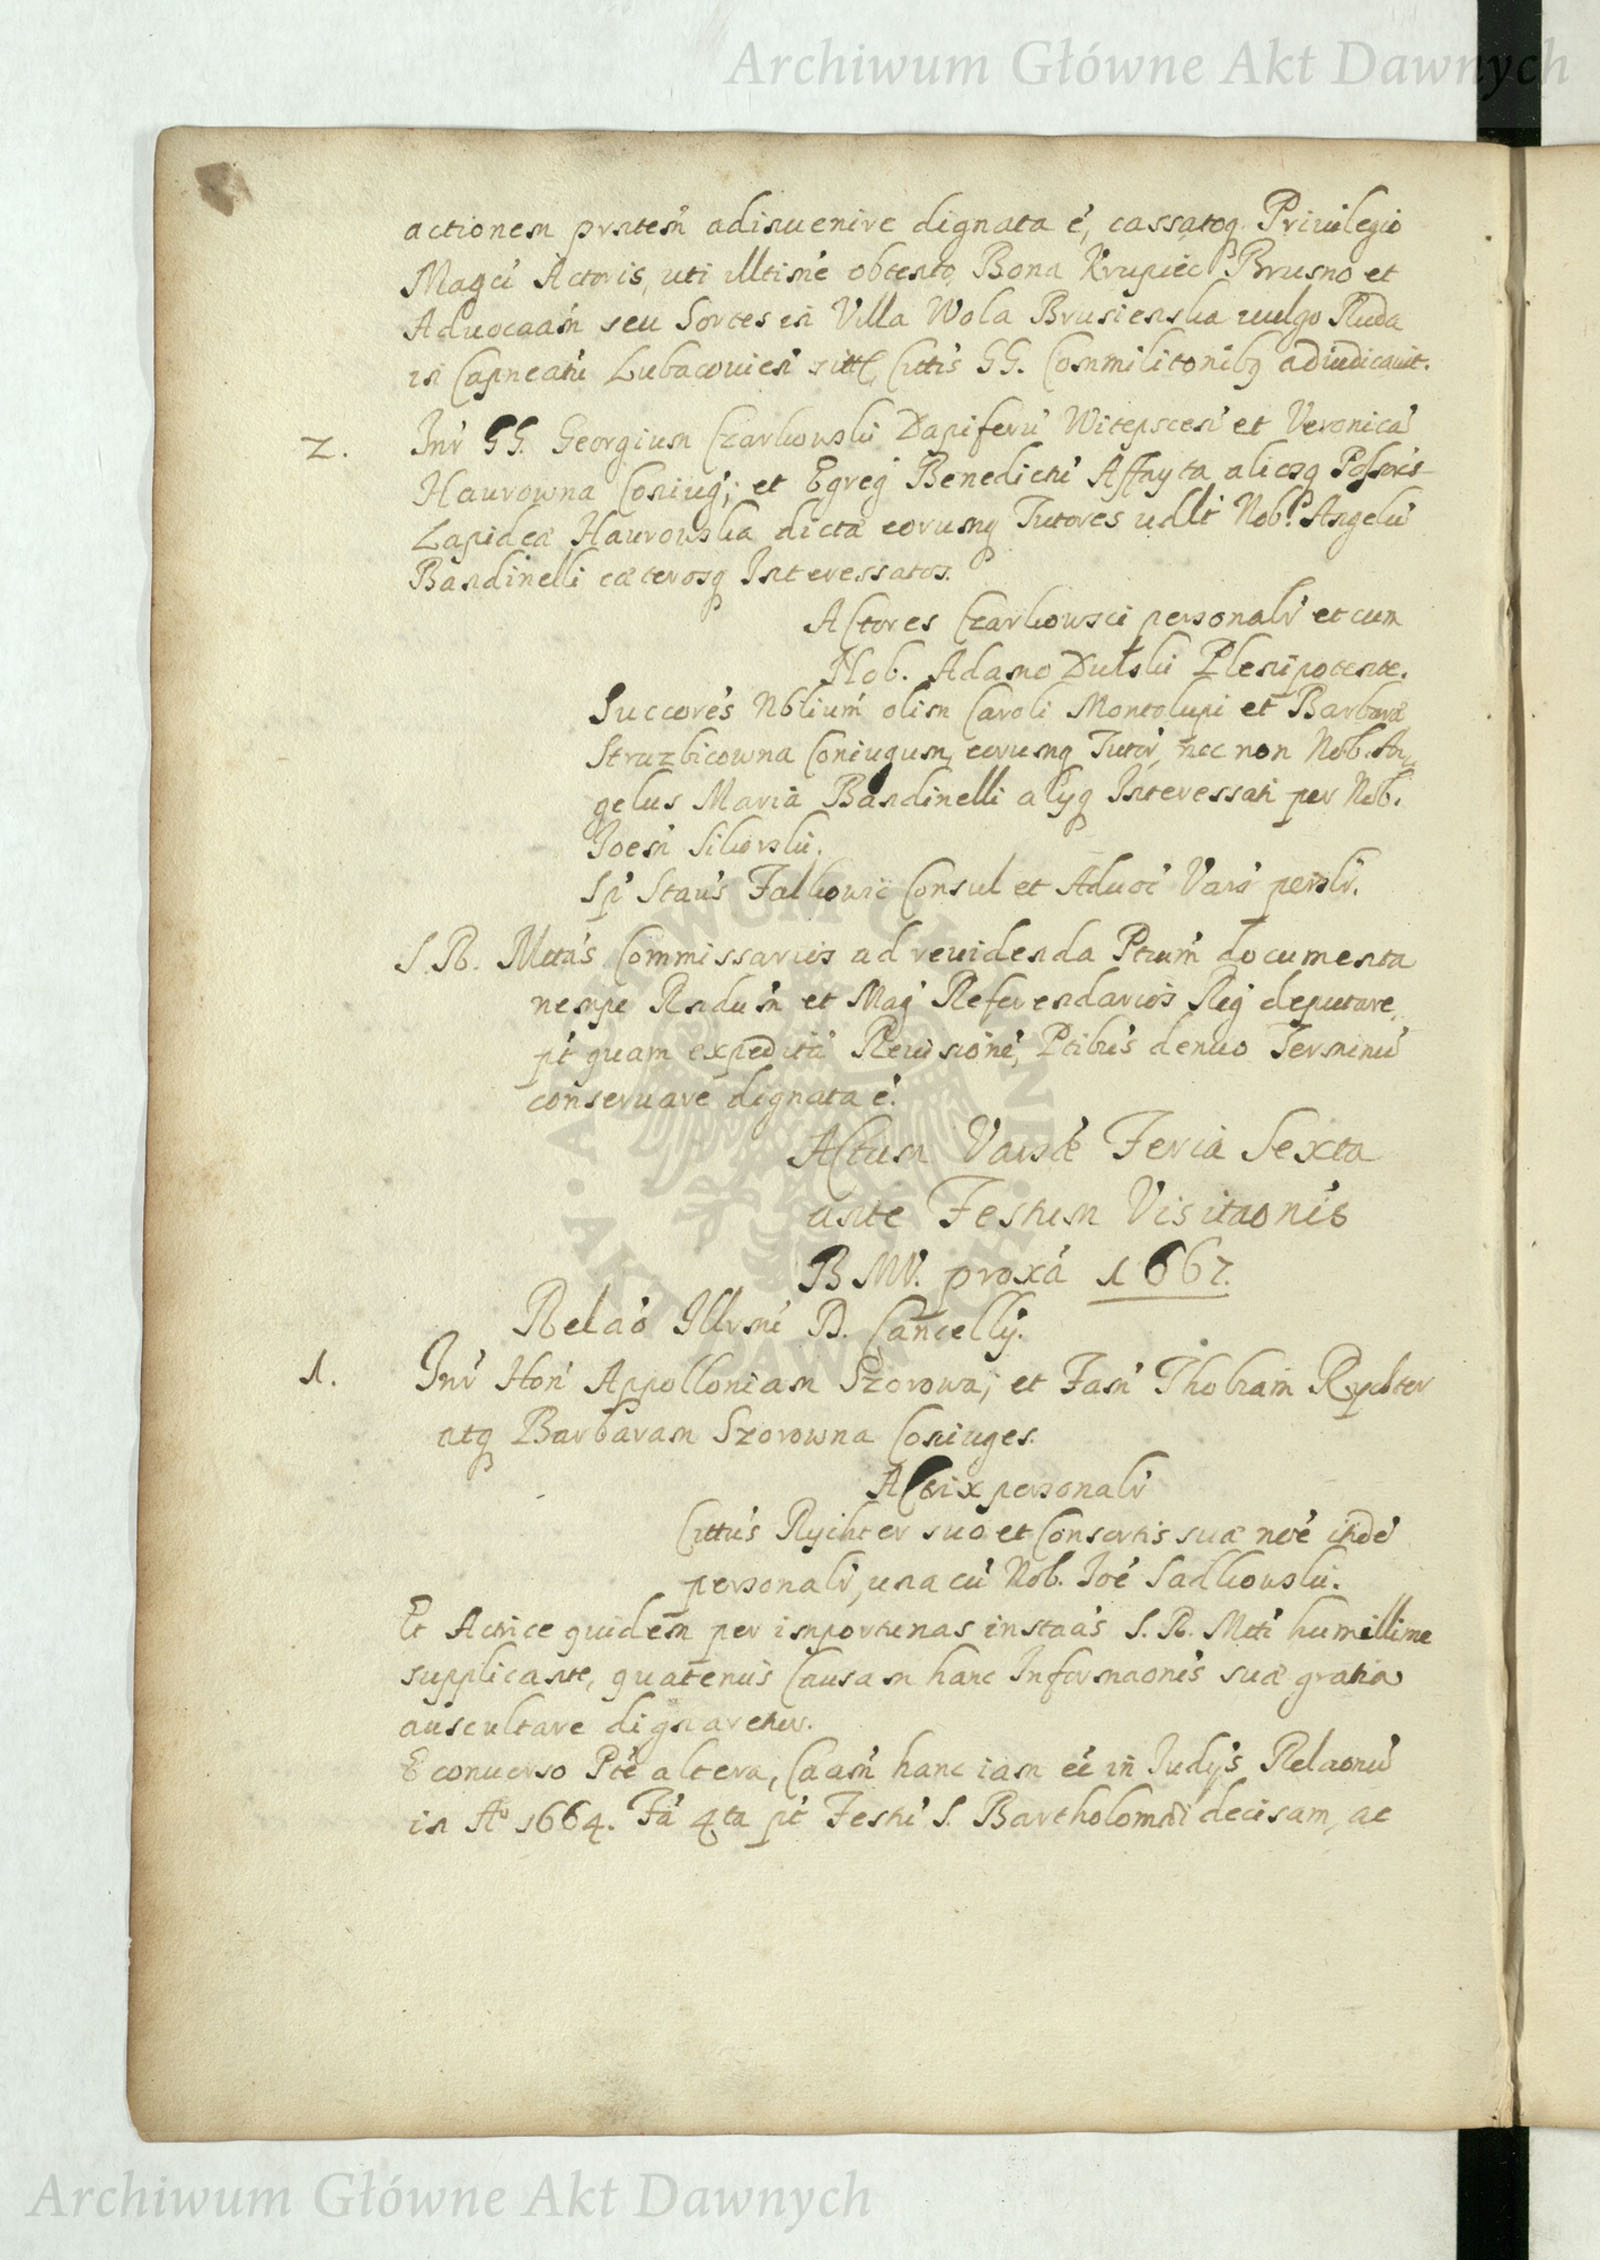 Archiwum Główne Akt Dawnych
actionem prntem̃ adinuenire dignata é, cassatoq Priuilegio
Magcí Actoris, uti ulltimé obtento, Bona Krupiec Brusno et
Aduocaam̃ seu Sortes in Villa Wola Brusienska uulgo Ruda
in Capneatú Lubacouien sitt, Cittis GG. Commilitonibq adiudicauit.
2. Inr GG. Georgium Czarkowski Dapiferú Witepscen et Veronicá
Haurowna Coniug; et Egreg Benedictí Affayta aliosq Possoris
Lapidea Haurowska dicta eorumq Tutores udlt Nobl Angelú
Bandinelli cæterosq Interessatos.
Actores Czarkowsci personalr et cum
Nob. Adamo Dulski Plenipotente.
Succorés Nblium̃ olim Caroli Montolupi et Barbaræ
Struzbicowna Coniugum, eorumq Tutór, nec non Nob. An,,
gelus Maria Bandinelli alijq Interessati per Nob.
Joem Sikorski.
Sp Staús Falkowic Consul et Aduoc Vars persĺr.
S. R. Mttás Commissarios ad reuidenda Ptium̃ documenta
nempe Rndum̃ et Mag Referendarios Reg deputare,
pt quam expeditá Reuisioné, Ptibús denuo Terminú
conseruare dignata é.
Actum Varsæ Feria Sexta
ante Festum Visitaonis
B M V. proxá 1667.
Relaó Illrmi D. Cancellÿ.
1. Inr Hon Appolloniam Szorowa; et Fam Thobiam Rychter
atq Barbaram Szorowna Coniuges.
Actrix personalr
Cittús Rychter suo et Consortis suæ noé indé
personalr, una cú Nob. Joé Sadkowski.
Et Actrice quidem per importunas instaás S. R. Mtti humillime
supplicante, quatenus Causam hanc Informaonis suæ gratia
auscultare dignaretur.
E conuerso Pté altera, Caam̃ hanc iam eé in Iudÿs Relaonú
in Ao 1664. Fá 4ta pt Festí S. Bartholomæi decisam, ac
Archiwum Główne Akt Dawnych